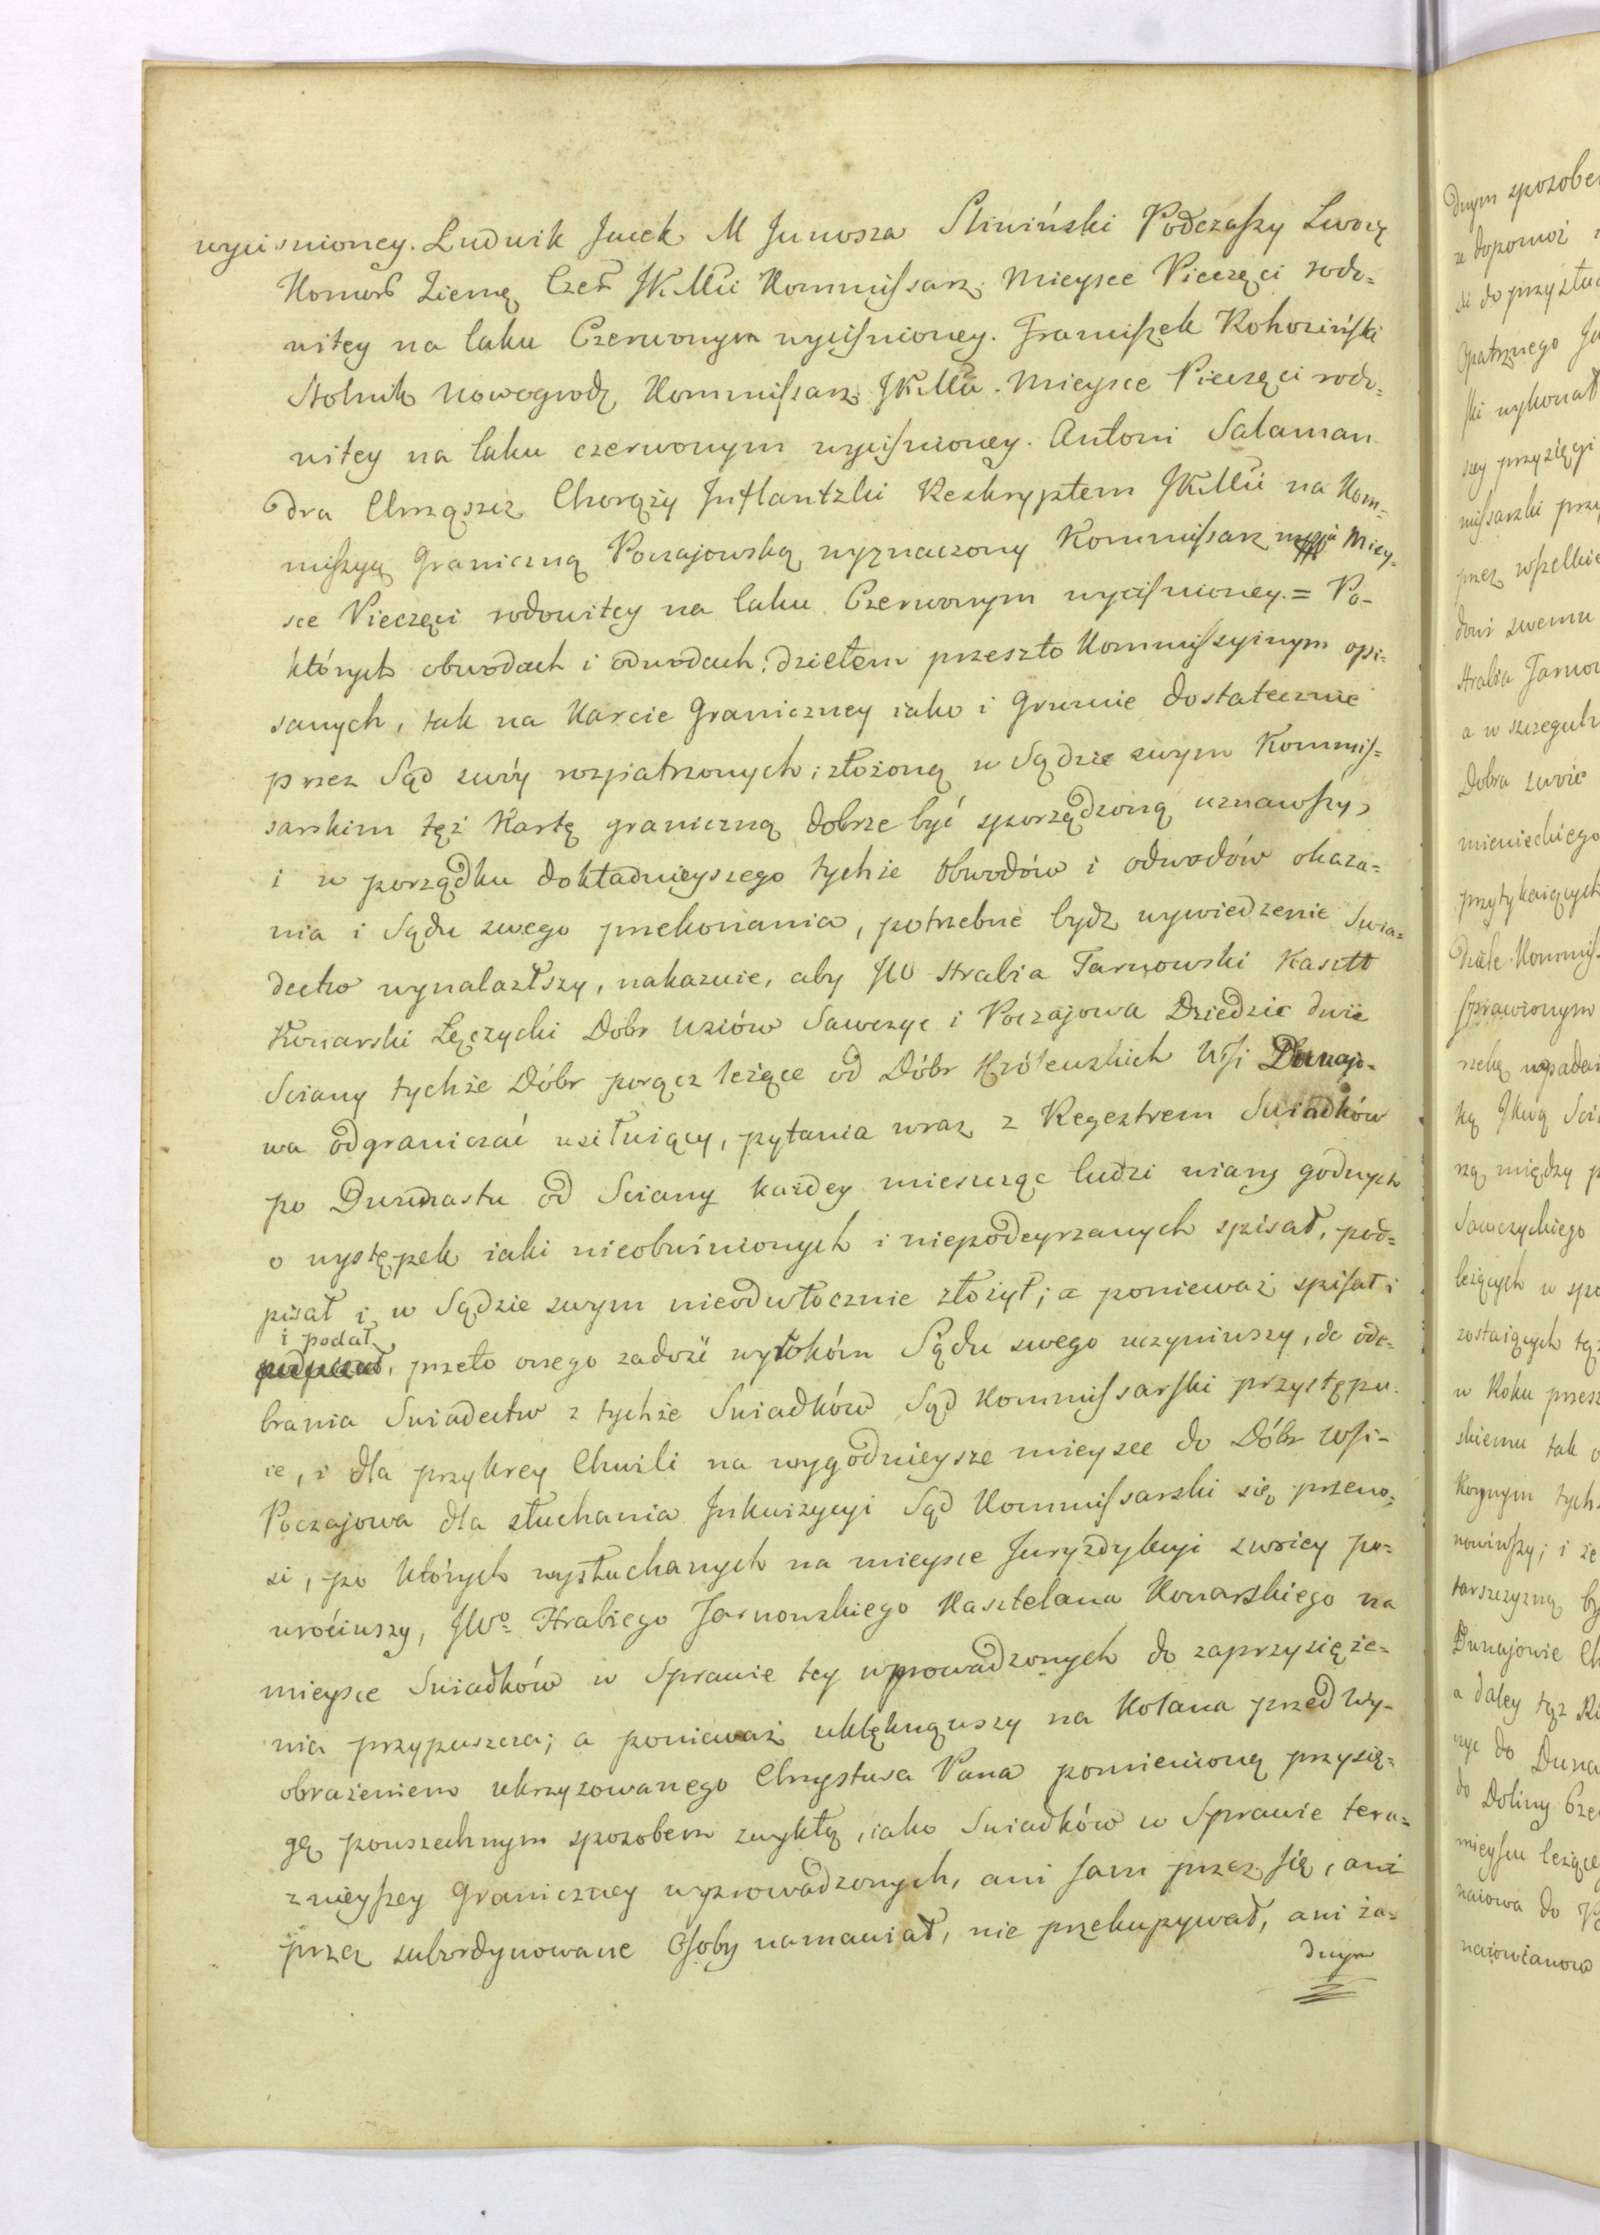 wyciśnioney. Ludwik Jacek M Junosza Śliwiński Podczaſzy Lwow
Komorꝭ Ziemꝭ Czer JKMci Kommiſsarz. Mieysce Pieczęci rodo-
witey na laku Czerwonym wyciſnioney. Franciſzek Rohoziński
Stolnik Nowogrodꝭ Kommiſsarz JKMci. Mieysce Pieczęci rodo-
witey na laku czerwonym wyciſnioney. Antoni Salaman
dra Chrząszcz Chorąży Inflantzki Reskryptem JKMci na Kom-
miſzyą Graniczną Poczajowską wyznaczony Kommiſsarz Miey-
sce Pieczęci rodowitey na laku Czerwonym wyciſnioney. = Po-
których obwodach i odwodach: dziełem przeszło Kommiſzyinym opi-
sanych, tak na Karcie Graniczney iako i Gruncie dostatecznie
przez Sąd swóy rozpatrzonych; złożoną w Sądzie swym Kommiſ-
sarskim tęż Kartę graniczną dobrze być sporządzoną uznawſzy,
i w porządku dokładnieyszego tychże Obwodów i odwodów okaza-
nia i Sądu swego przekonania, potrzebne bydz wywiedzenie Swia-
dectw wynalazłszy, nakazuie, aby JW Hrabia Tarnowski Kasztt
Konarski Łęczycki Dóbr Wsiów Sawczyc i Poczajowa Dziedzic dwie
Sciany tychże Dóbr poręcz leżące od Dóbr Królewskich Wſi Dunajo-
wa odgraniczać usiłuiący, pytania wraz z Regestrem Swiadków
po Dwunastu od Sciany każdey mieszcząc ludzi wiary godnych
o występek iaki nieobwinionych i niepodeyrzanych spisał, pod-
pisał i w Sądzie swym nieodwłocznie złożył; a ponieważ spiſał i
i podał
przeto onego zadość wyrokóm Sądu swego uczyniwszy, do ode-
brania Swiadectw z tychże Swiadków Sąd Kommiſsarſki przystępu-
ie, i dla przykrey Chwili na wygodnieysze mieysce do Dóbr Wſi-
Poczajowa dla słuchania Inkwizycyi Sąd Kommiſsarski się przeno-
si, po których wysłuchanych na mieysce Juryzdykcyi swoiey po-
wróciwszy, JWo Hrabiego Tarnowskiego Kasztelana Konarskiego na
mieysce Swiadków w Sprawie tey wprowadzonych do zaprzysięże-
nia przypuszcza; a ponieważ uklęknąwszy na Kolana przed Wy-
obrażeniem ukrzyzowanego Chrystusa Pana pomienioną przysię-
gę powszechnym sposobem zwykłą, iako Swiadków w Sprawie tera-
znieyſzey Graniczney wyprowadzonych, ani sam przez ſię, ani
przez subordynowane Oſoby namawiał, nie przekupywał, ani ża-
dnym
dnym sposobem
dopomoż
do przysłu
Opatrznego
ſki wykonał
szey przysięgi
miſsarski przy
przez wſzelkie
dowi swemu
Hrabia Tarnow
a w szczegul
Dobra swoie
mienieckiego
przytykaiących
Dziele Kommiſs
ſprawionym
Sawczyckiego
leżących w spo
zostaiących tęż
w Roku przesz
skiemu tak o
nowiwſzy; i że
Dunajowie Ch
a daley tęż
do Duna
do Doliny Cze
mieyſcu leżące
naiowa do
naiowianow